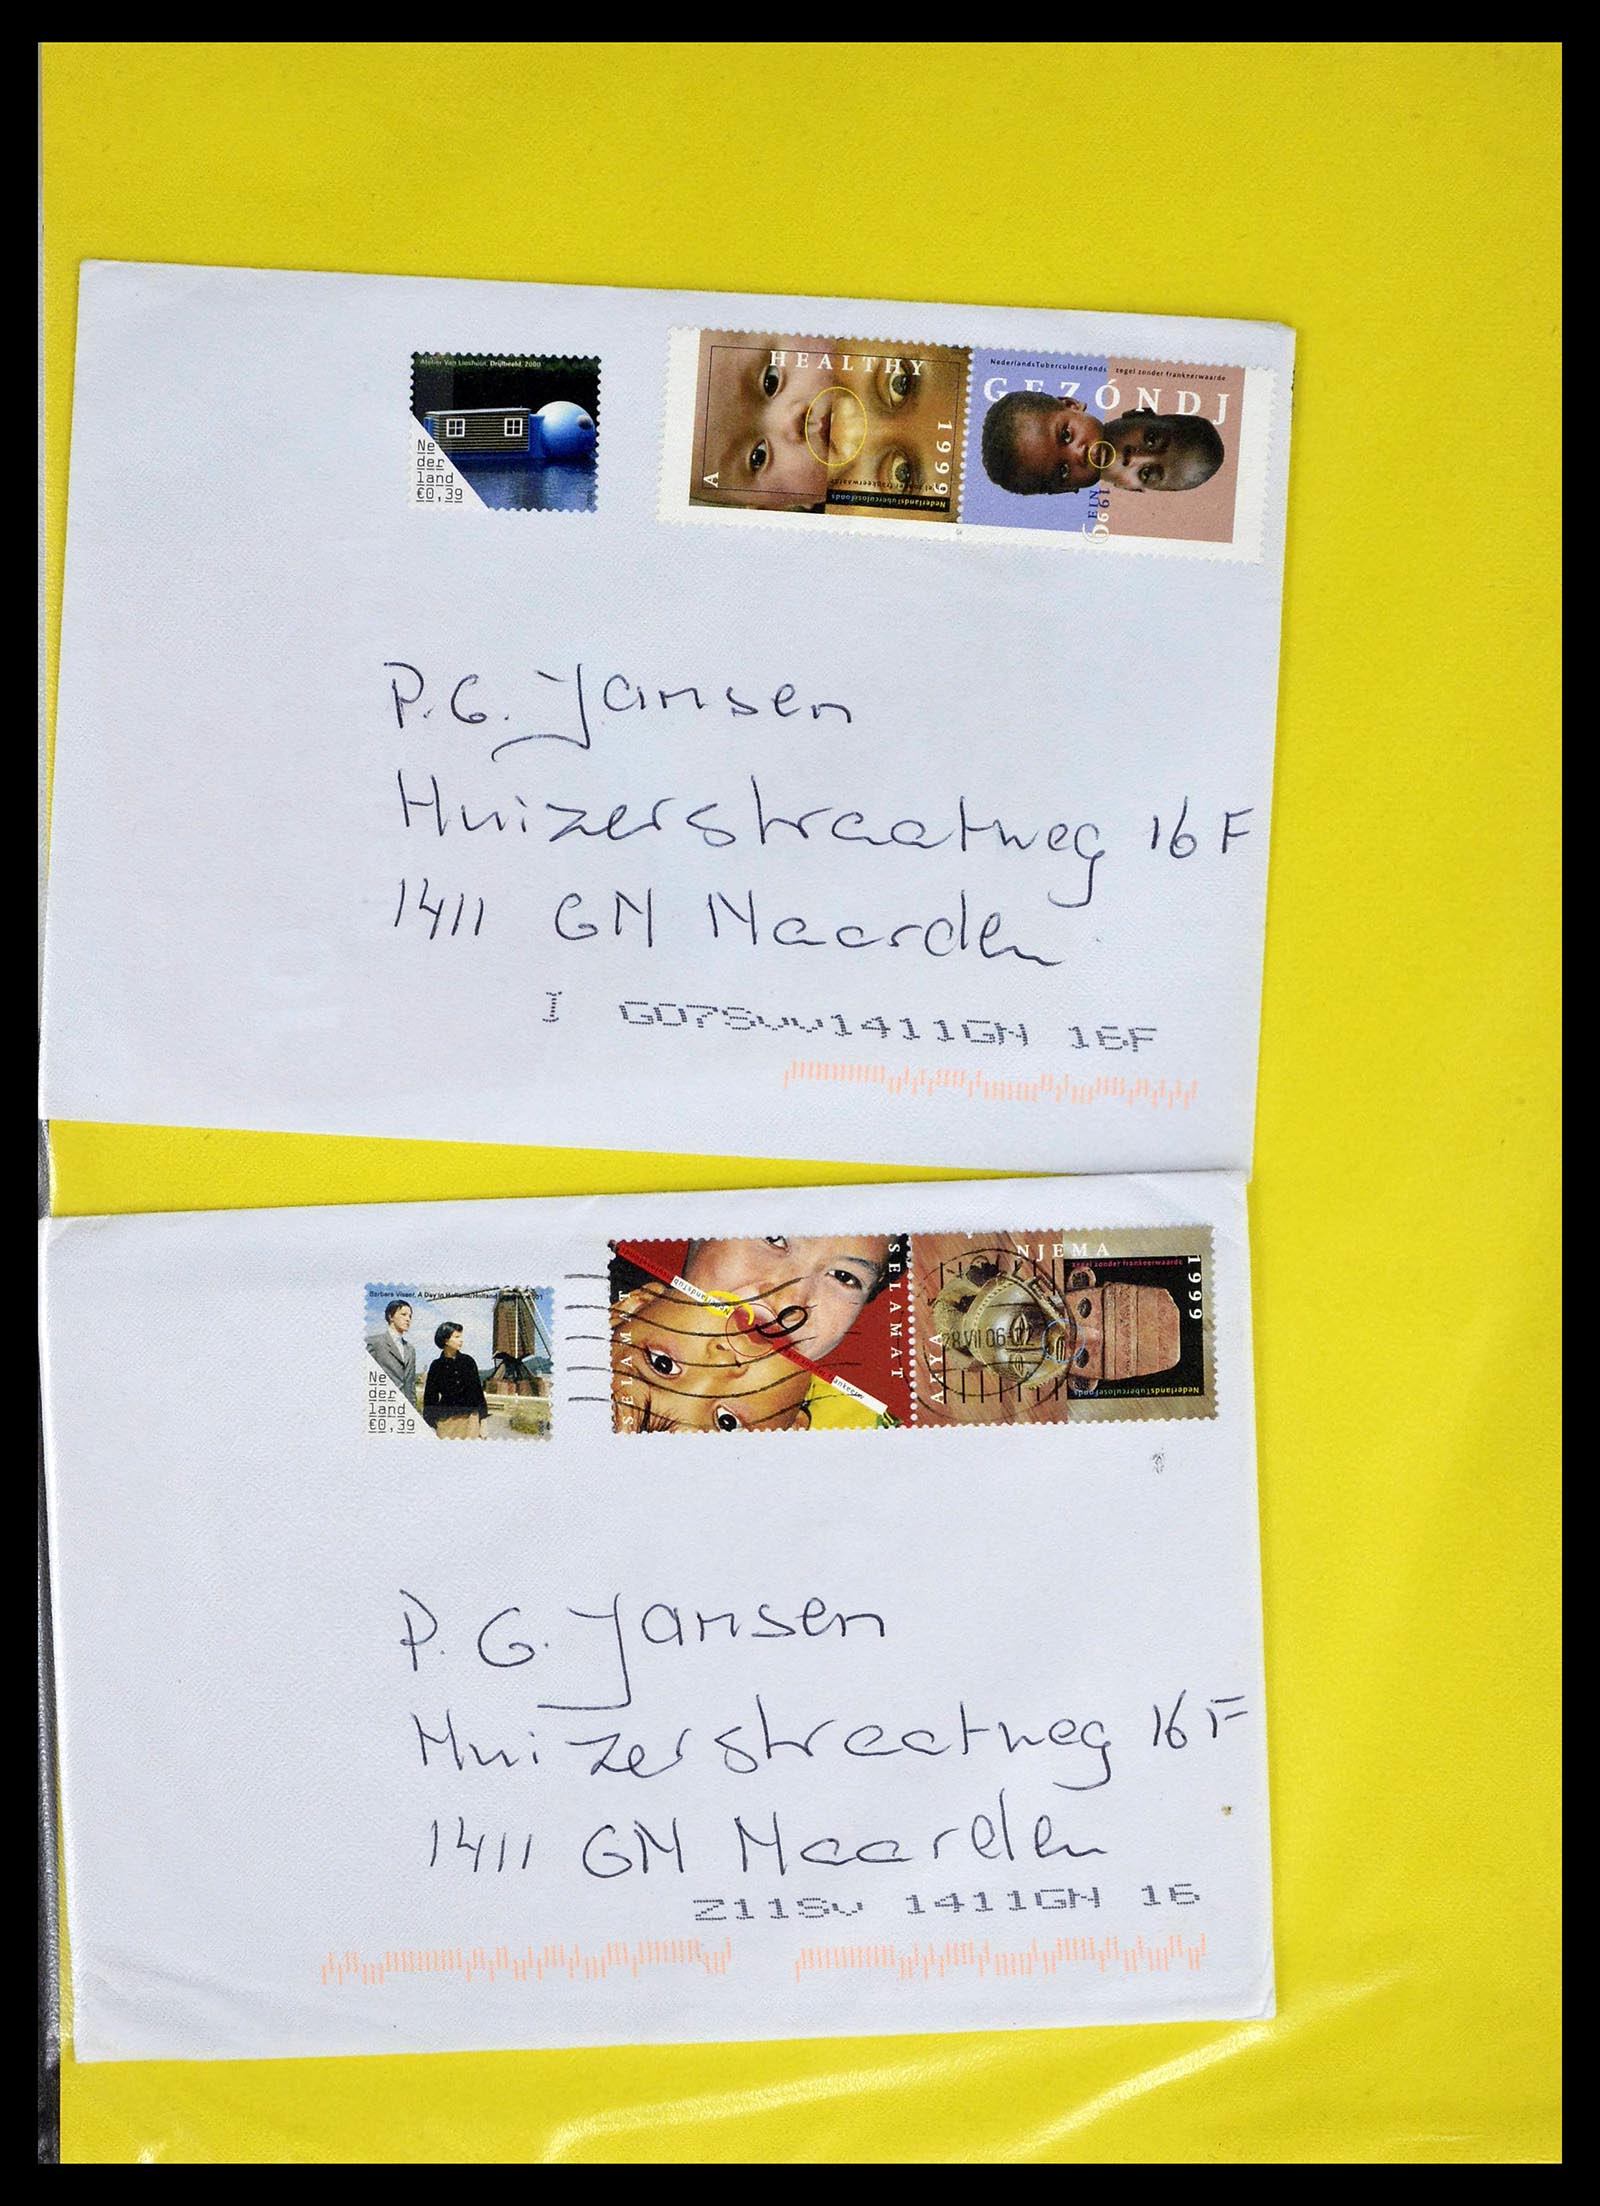 Atelier Van Lieshout, Drijfbeeld, 2000
Ne
der
land
€0,39
HEALTHY
1999
A
Nederlands Tuberculosefonds
NederlandsTuberculoseFonds zegel zonder frankeerwaarde
GEZÓNDJ
EIN
1999
P.G. Jansen
Huizerstraatweg 16F
1411 GN Naarden
I GO7Svv1411GN 16F
Barbara Visser, A Day in Holland/Holland
Ne
der
land
€0,39
SELAMAT
SELAMAT
NJEMA
zegel zonder frankeerwaarde
1999
AFYA
NederlandsTuberculoseFonds
28 VII 06-12
P.G. Jansen
Huizerstraatweg 16F
1411 GN Naarden
Z11Sv 1411GN 16